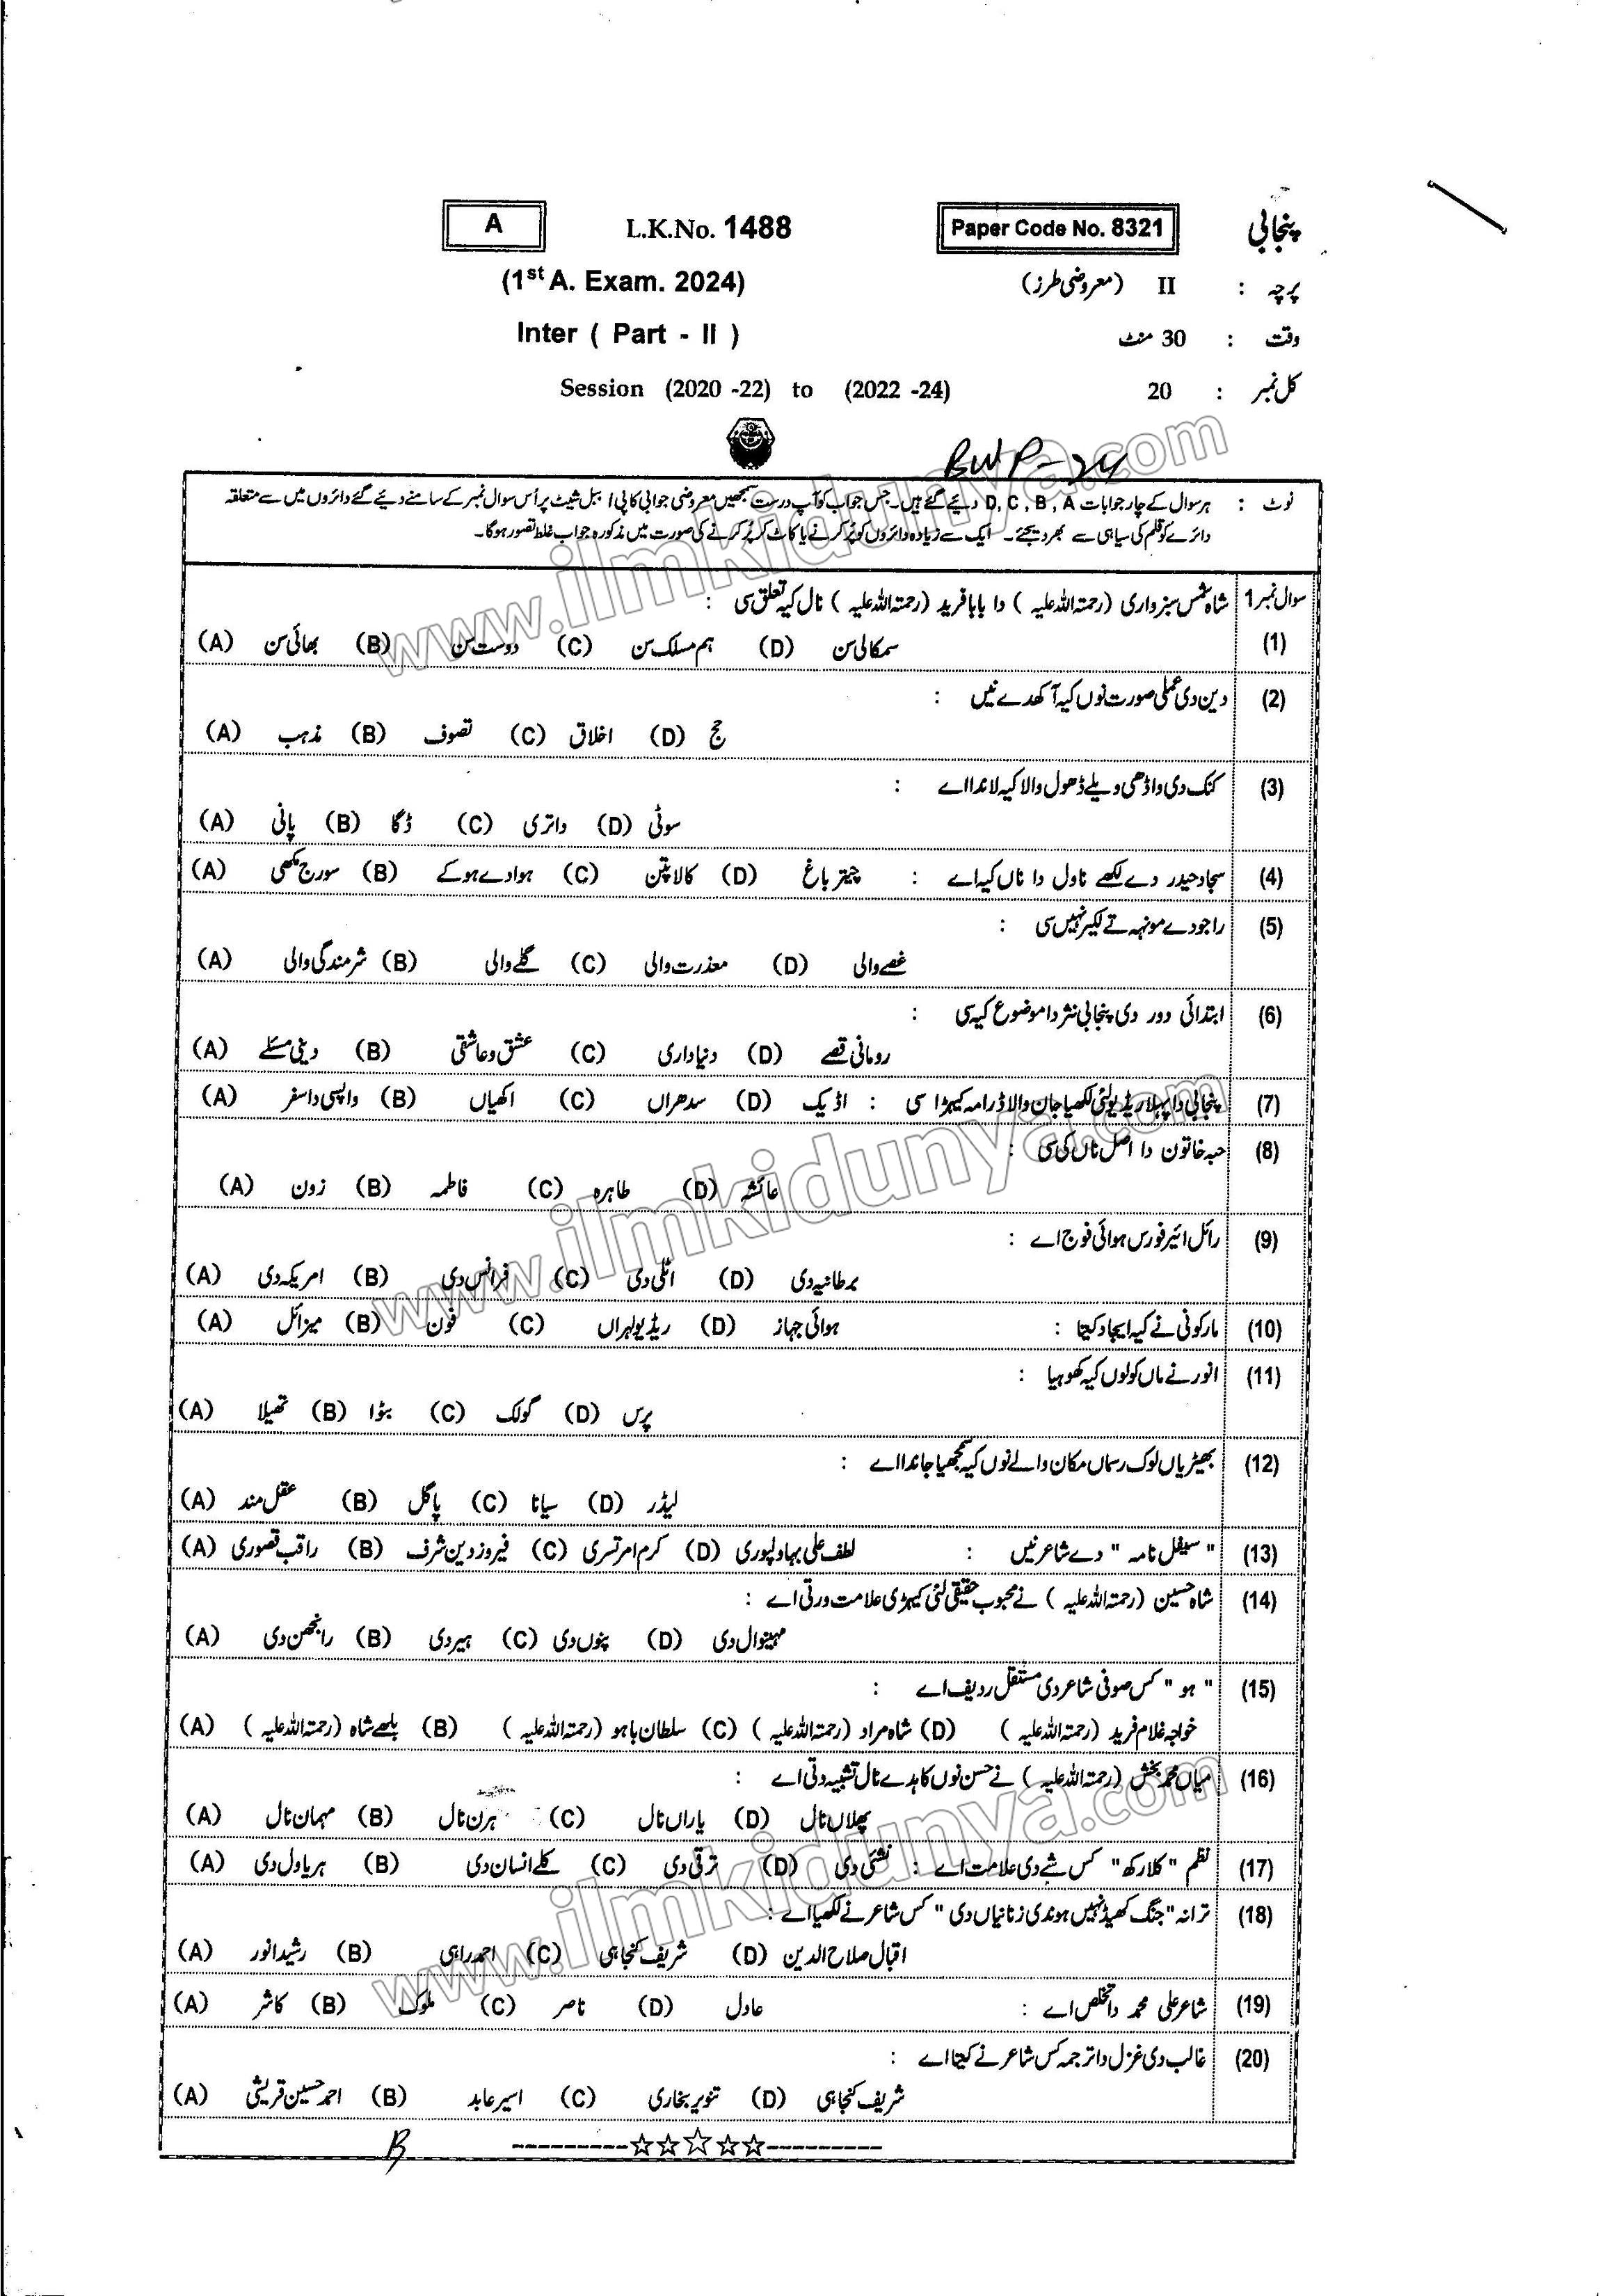 A
L.K.No. 1488
Paper Code No. 8321
پنجابی
(1st A. Exam. 2024)
پرچہ : II (معروضی طرز)
Inter ( Part - II )
وقت : 30 منٹ
Session (2020 -22) to (2022 -24)
کل نمبر : 20
BWP-24
نوٹ : ہر سوال کے چار جوابات D, C, B, A دیئے گئے ہیں۔ جس جواب کو آپ درست سمجھیں معروضی جوابی کاپی / ببل شیٹ پر اُس سوال نمبر کے سامنے دیئے گئے دائروں میں سے متعلقہ
دائرے کو قلم کی سیاہی سے بھر دیجئے۔ ایک سے زیادہ دائروں کو پُر کرنے یا کاٹ کر پُر کرنے کی صورت میں مذکورہ جواب غلط تصور ہوگا۔
سوال نمبر 1 شاہ شمس سبزواری (رحمتہ اللہ علیہ) دا بابا فرید (رحمتہ اللہ علیہ) نال کیہ تعلق سی :
(1) (A) بھائی سن (B) دوست سن (C) ہم مسلک سن (D) سمکالی سن
(2) دین دی عملی صورت نوں کیہ آکھدے نیں :
(A) مذہب (B) تصوف (C) اخلاق (D) حج
(3) کنک دی واڈھی ویلے ڈھول والا کیہ لاندا اے :
(A) پانی (B) ڈگا (C) داتری (D) سوٹی
(4) سجاد حیدر دے لکھے ناول دا ناں کیہ اے : (A) سورج مکھی (B) ہوا دے ہوکے (C) کالا پتن (D) چیتر باغ
(5) راجو دے مونہہ تے لکیر نہیں سی :
(A) شرمندگی والی (B) گلے والی (C) معذرت والی (D) غصے والی
(6) ابتدائی دور دی پنجابی نثر دا موضوع کیہ سی :
(A) دینی مسئلے (B) عشق و عاشقی (C) دنیا داری (D) رومانی قصے
(7) پنجابی دا پہلا ریڈیو لئی لکھیا جان والا ڈرامہ کیہڑا سی : (A) واپسی دا سفر (B) اکھیاں (C) سدھراں (D) اڈیک
(8) حبہ خاتون دا اصل ناں کی سی :
(A) زون (B) فاطمہ (C) طاہرہ (D) عائشہ
(9) رائل ائیر فورس ہوائی فوج اے :
(A) امریکہ دی (B) فرانس دی (C) اٹلی دی (D) برطانیہ دی
(10) مارکونی نے کیہ ایجاد کیتا : (A) میزائل (B) فون (C) ریڈیو لہراں (D) ہوائی جہاز
(11) انور نے ماں کولوں کیہ کھوہیا :
(A) تھیلا (B) بٹوا (C) گولک (D) پرس
(12) بھیڑیاں لوک رسماں مکان والے نوں کیہ سمجھیا جاندا اے :
(A) عقل مند (B) پاگل (C) سیانا (D) لیڈر
(13) " سیفل نامہ " دے شاعر نیں : (A) راقب قصوری (B) فیروز دین شرف (C) کرم امرتسری (D) لطف علی بہاولپوری
(14) شاہ حسین (رحمتہ اللہ علیہ) نے محبوب حقیقی لئی کیہڑی علامت ورتی اے :
(A) رانجھن دی (B) ہیر دی (C) پنوں دی (D) مہینوال دی
(15) " ہو " کس صوفی شاعر دی مستقل ردیف اے :
(A) بلھے شاہ (رحمتہ اللہ علیہ) (B) سلطان باہو (رحمتہ اللہ علیہ) (C) شاہ مراد (رحمتہ اللہ علیہ) (D) خواجہ غلام فرید (رحمتہ اللہ علیہ)
(16) میاں محمد بخش (رحمتہ اللہ علیہ) نے حسن نوں کاہدے نال تشبیہ دتی اے :
(A) مہمان نال (B) ہرن نال (C) یاراں نال (D) پھلاں نال
(17) نظم " کلا رکھ " کس شے دی علامت اے : (A) ہریاول دی (B) کلے انسان دی (C) ترقی دی (D) نشئی دی
(18) ترانہ " جنگ کھیڈ نہیں ہوندی زنانیاں دی " کس شاعر نے لکھیا اے :
(A) رشید انور (B) احمد راہی (C) شریف کنجاہی (D) اقبال صلاح الدین
(19) شاعر علی محمد دا تخلص اے : (A) کاشر (B) ملوک (C) ناصر (D) عادل
(20) غالب دی غزل دا ترجمہ کس شاعر نے کیتا اے :
(A) احمد حسین قریشی (B) اسیر عابد (C) تنویر بخاری (D) شریف کنجاہی
B
www.ilmkidunya.com
www.ilmkidunya.com
www.ilmkidunya.com